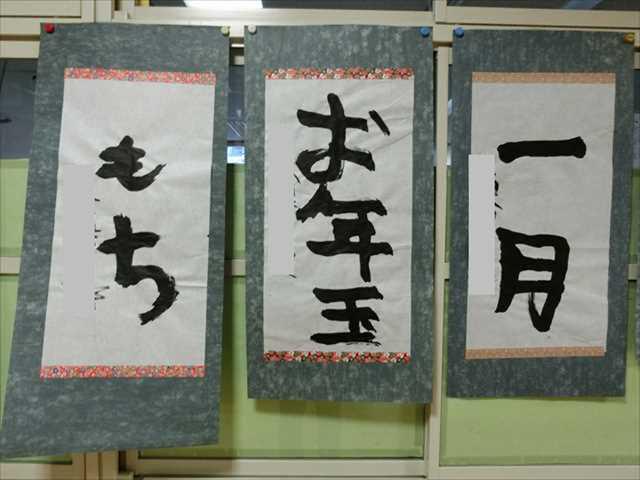 一月
お年玉
もち